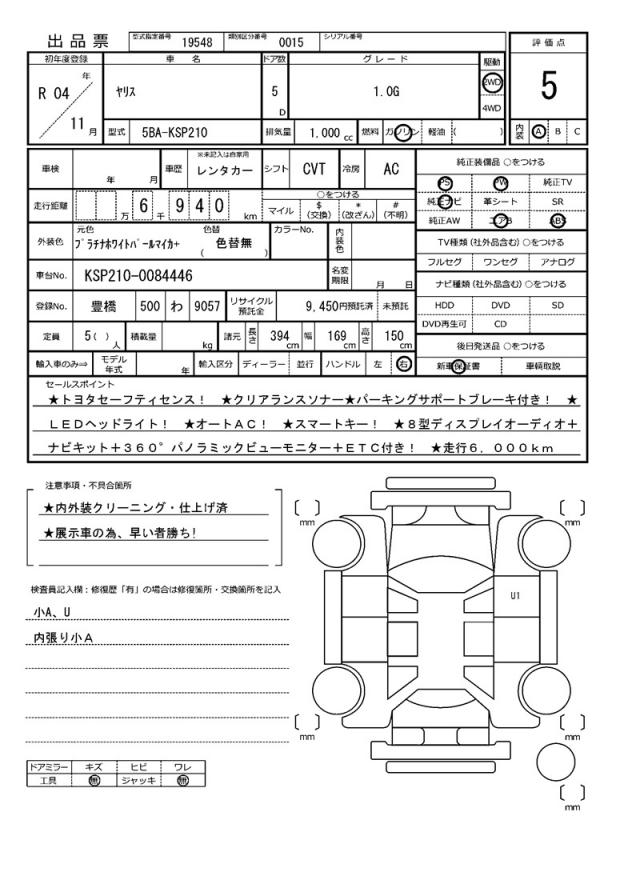 出品票 型式指定番号 19548 類別区分番号 0015 シリアル番号
初年度登録 車名 ドア数 グレード 駆動 評価点
R 04 年 11 月 ヤリス 5 D 1.0G 2WD 4WD 5
型式 5BA-KSP210 排気量 1,000 cc 燃料 ガソリン 軽油 ( ) 内装 A B C
車検 年 月 車歴 ※未記入は自家用 レンタカー シフト CVT 冷房 AC 純正装備品 ○をつける
走行距離 万 6 千 9 4 0 km ○をつける PS PW 純正TV
マイル $ (交換) * (改ざん) # (不明) 純正ナビ 革シート SR
純正AW エアB ABS
外装色 元色 プラチナホワイトパールマイカ+ 色替 ( 色替無 ) カラーNo. 内装色 TV種類 (社外品含む) ○をつける
フルセグ ワンセグ アナログ
車台No. KSP210-0084446 名変期限 月 日 ナビ種類 (社外品含む) ○をつける
登録No. 豊橋 500 わ 9057 リサイクル預託金 9,450円預託済 未預託 HDD DVD SD
DVD再生可 CD
定員 5( ) 人 積載量 kg 諸元 長さ 394 cm 幅 169 cm 高さ 150 cm 後日発送品 ○をつける
輸入車のみ⇒ モデル年式 年 輸入区分 ディーラー 並行 ハンドル 左 右 新車保証書 車輌取説
セールスポイント
★トヨタセーフティセンス! ★クリアランスソナー★パーキングサポートブレーキ付き! ★
LEDヘッドライト! ★オートAC! ★スマートキー! ★8型ディスプレイオーディオ+
ナビキット+360°パノラミックビューモニター+ETC付き! ★走行6,000km
注意事項・不具合箇所
★内外装クリーニング・仕上げ済
★展示車の為、早い者勝ち!
検査員記入欄:修復歴「有」の場合は修復箇所・交換箇所を記入
小A、U
内張り小A
ドアミラー キズ ヒビ ワレ
工具 無 ジャッキ 無
[ ] mm [ ] mm
U1
[ ] mm [ ] mm
[ ] mm